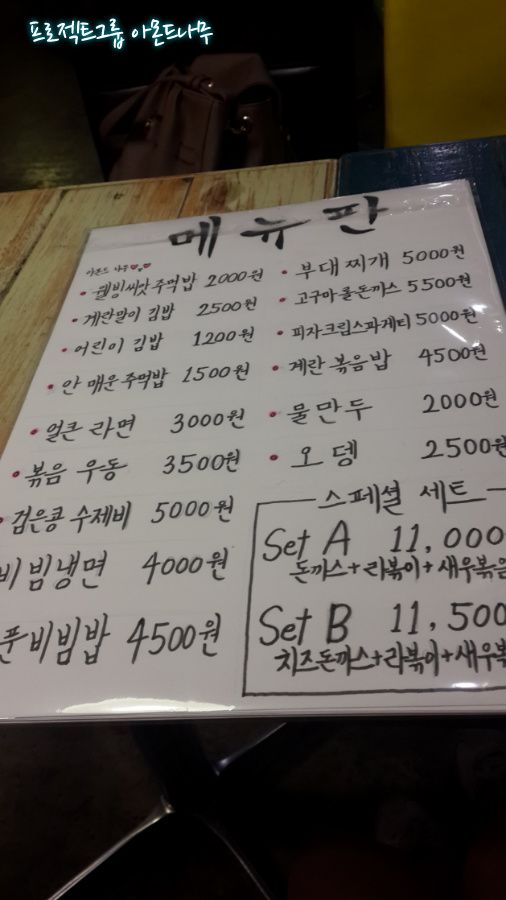 프로젝트그룹 아몬드나무
메뉴판
아몬드 나무
웰빙씨앗주먹밥 2000원
계란말이 김밥 2500원
어린이 김밥 1200원
안 매운 주먹밥 1500원
얼큰 라면 3000원
볶음 우동 3500원
검은콩 수제비 5000원
비빔냉면 4000원
비빔밥 4500원
부대찌개 5000원
고구마롤돈까스 5500원
피자크림스파게티 5000원
계란 볶음밥 4500원
물만두 2000원
오뎅 2500원
스페셜 세트
Set A 11,000
돈까스+라볶이+새우볶음
Set B 11,500
치즈돈까스+라볶이+새우볶